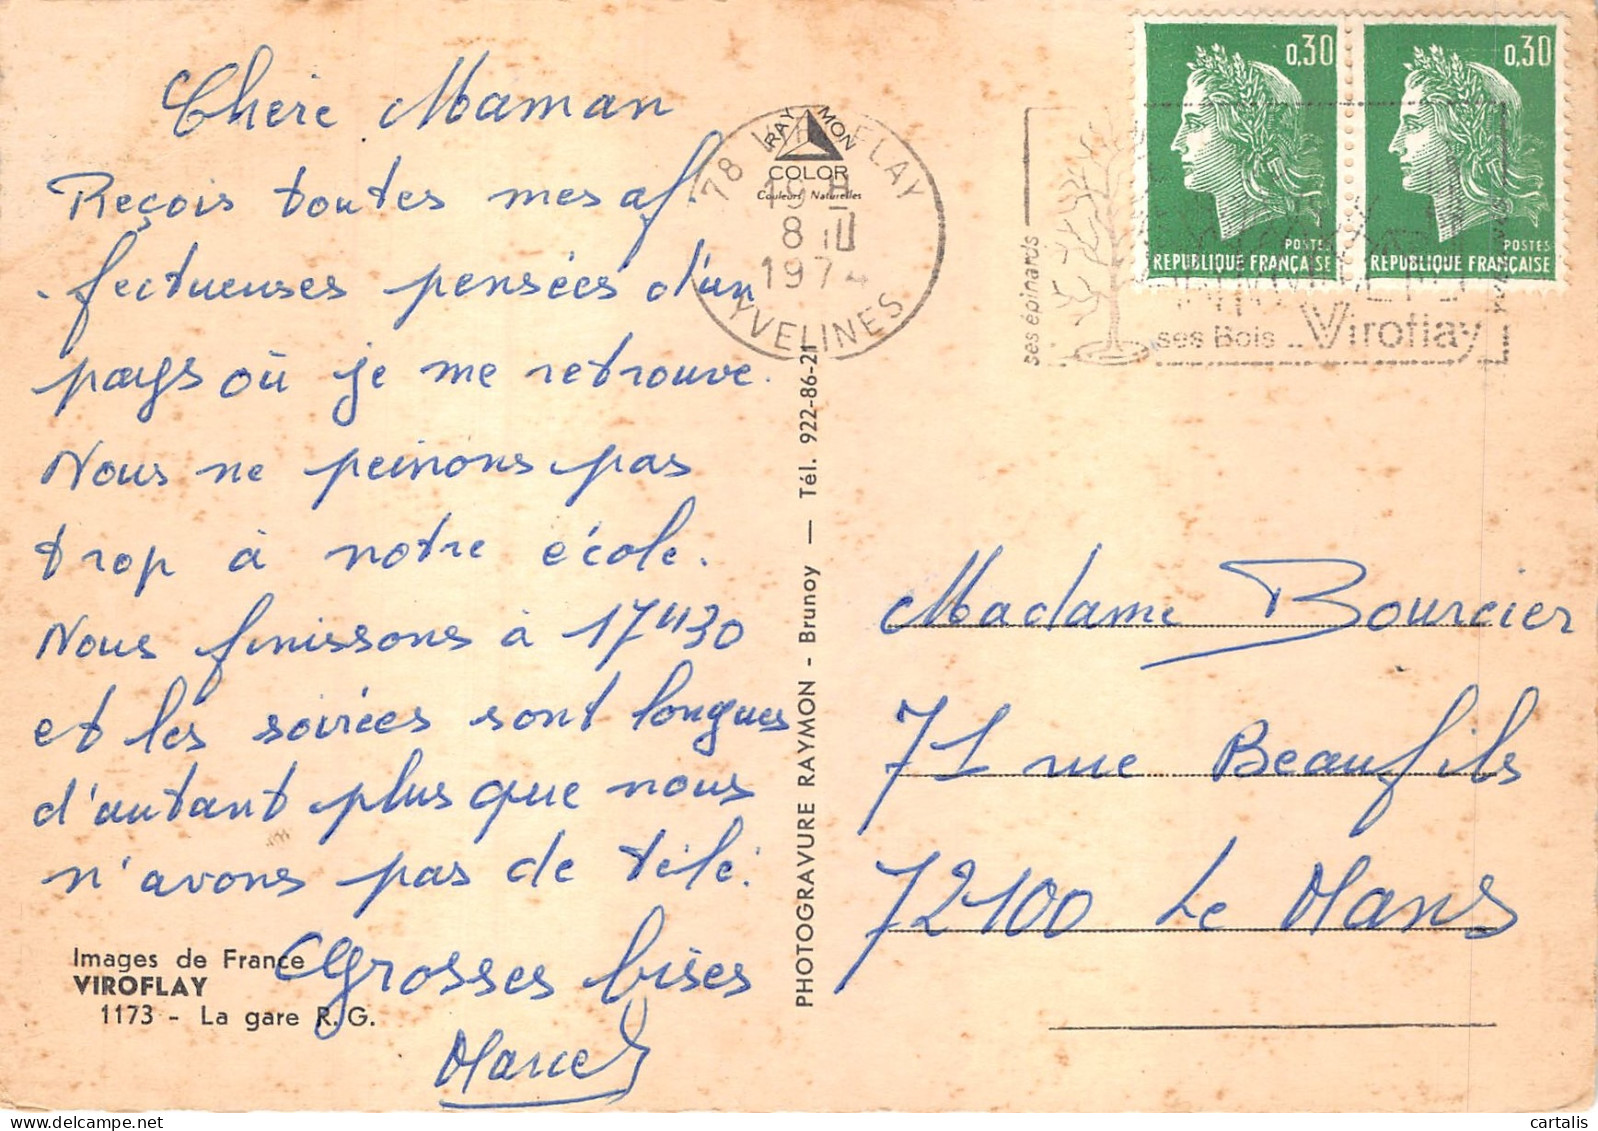 Chère Maman
Reçois toutes mes af-
fectueuses pensées d'un
pays où je me retrouve.
Nous ne peinons pas
trop à notre école.
Nous finissons à 17H30
et les soirées sont longues
d'autant plus que nous
n'avons pas de télé.
Grosses bises
Marcel
Images de France
VIROFLAY
1173 - La gare R. G.
PHOTOGRAVURE RAYMON - Brunoy — Tél. 922-86-21
RAY MON
COLOR
Couleurs Naturelles
78 VIROFLAY
19 H
8 II
1974
YVELINES
0,30
POSTES
REPUBLIQUE FRANÇAISE
0,30
POSTES
REPUBLIQUE FRANÇAISE
ses épinards
ses Bois .. Viroflay
Madame Bourcier
71 rue Beaufils
72100 Le Mans
cartalis